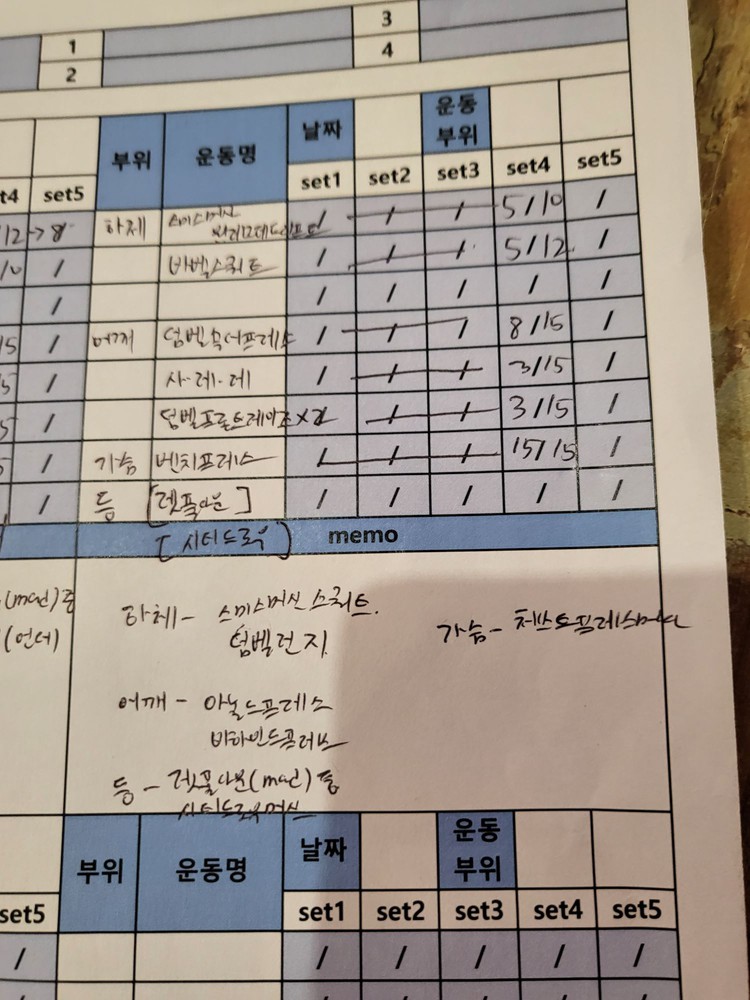 1 3
2 4
날짜 운동 부위
부위 운동명
t4 set5 set1 set2 set3 set4 set5
12→8 하체 스미스머신 / / / 5/10 /
/0 / 바벨스쿼트 / / / 5/12 /
/ / / / / /
/5 / 어깨 덤벨숄더프레스 / / / 8/15 /
5 / 사.레.레 / / / 3/15 /
5 / 덤벨프론트레이즈x2 / / / 3/15 /
5 / 가슴 벤치프레스 / / / 15/15 /
/ 등 [렛풀다운] / / / / /
[시티드로우] memo
(mad)등
(언더)
하체- 스미스머신 스쿼트.
덤벨런지
가슴-
어깨 - 아놀드프레스
비하인드프레스
등 - 렛풀다운(mad)등
시티드로우머신
날짜 운동 부위
부위 운동명
set5 set1 set2 set3 set4 set5
/ / / / / /
/ / / / / /